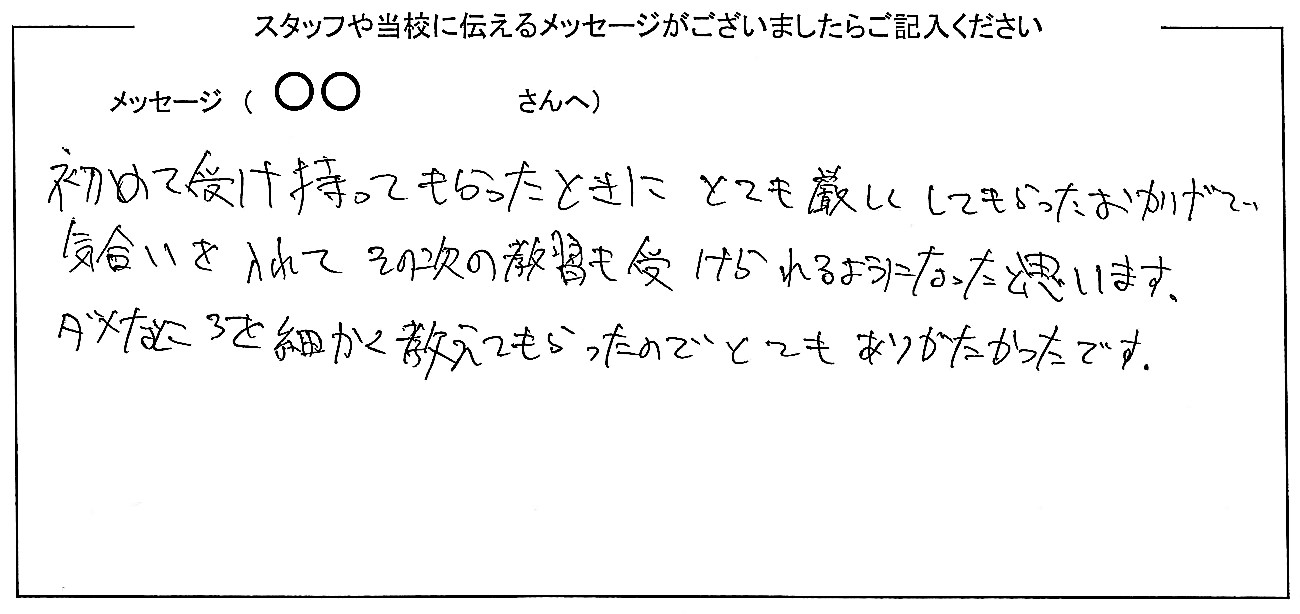 スタッフや当校に伝えるメッセージがございましたらご記入ください
メッセージ ( 〇〇 さんへ)
初めて受け持ってもらったときに とても厳しくしてもらったおかげで、
気合いを入れて その次の教習も受けられるようになったと思います。
ダメなところを細かく教えてもらったので とても ありがたかったです。